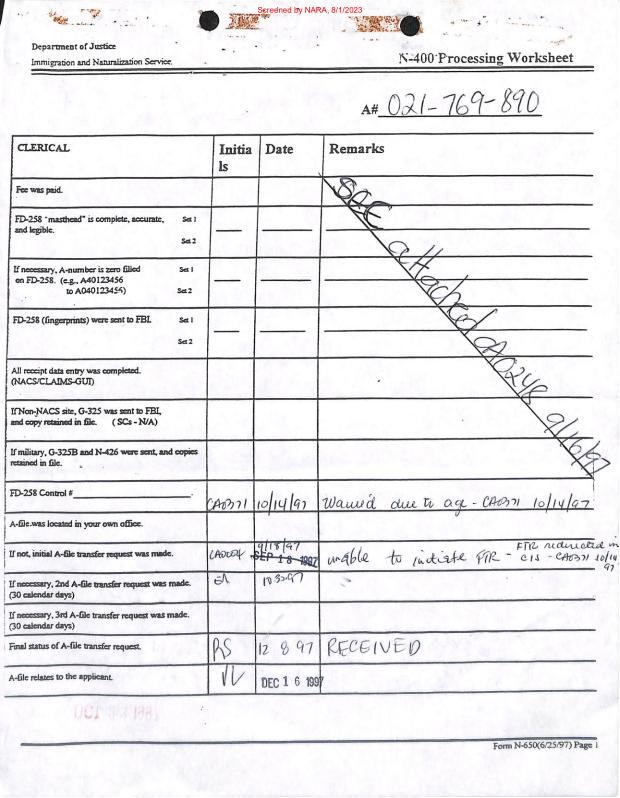 Screened by NARA, 8/1/2023
Department of Justice
Immigration and Naturalization Service.
N-400 Processing Worksheet
A# 021-769-890
CLERICAL
Initia
ls
Date
Remarks
Fee was paid.
FD-258 "masthead" is complete, accurate,
and legible.
Set 1
Set 2
If necessary, A-number is zero filled
on FD-258. (e.g., A40123456
to A040123454)
Set 1
Set 2
FD-258 (fingerprints) were sent to FBI.
Set 1
Set 2
See attached CA0248 9/16/97
All receipt data entry was completed.
(NACS/CLAIMS-GUI)
If Non-NACS site, G-325 was sent to FBI,
and copy retained in file. (SCs - N/A)
If military, G-325B and N-426 were sent, and copies
retained in file.
FD-258 Control #
CA0371 10/14/97 Waived due to age - CA0371 10/14/97
A-file was located in your own office.
If not, initial A-file transfer request was made.
9/18/97
SEP 18 1997
unable to initiate FTR -
FTR
in
CIS - CA0371 10/14
97
If necessary, 2nd A-file transfer request was made.
(30 calendar days)
If necessary, 3rd A-file transfer request was made.
(30 calendar days)
Final status of A-file transfer request.
RS 12 8 97 RECEIVED
A-file relates to the applicant.
VL DEC 16 1997
Form N-650(6/25/97) Page 1